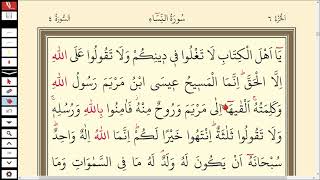 اَلْجُزْءُ ٦ سُورَةُ النِّسَاءِ اَلسُّورَةُ ٤
يَٓا اَهْلَ الْكِتَابِ لَا تَغْلُوا فٖي دٖينِكُمْ وَلَا تَقُولُوا عَلَى اللّٰهِ
اِلَّا الْحَقَّ اِنَّمَا الْمَسٖيحُ عٖيسَى ابْنُ مَرْيَمَ رَسُولُ اللّٰهِ
وَكَلِمَتُهُ اَلْقٰيهَٓا اِلٰى مَرْيَمَ وَرُوحٌ مِنْهُ فَاٰمِنُوا بِاللّٰهِ وَرُسُلِهٖ
وَلَا تَقُولُوا ثَلٰثَةٌ اِنْتَهُوا خَيْرًا لَكُمْ اِنَّمَا اللّٰهُ اِلٰهٌ وَاحِدٌ
سُبْحَانَهُٓ اَنْ يَكُونَ لَهُ وَلَدٌ لَهُ مَا فِي السَّمٰوَاتِ وَمَا